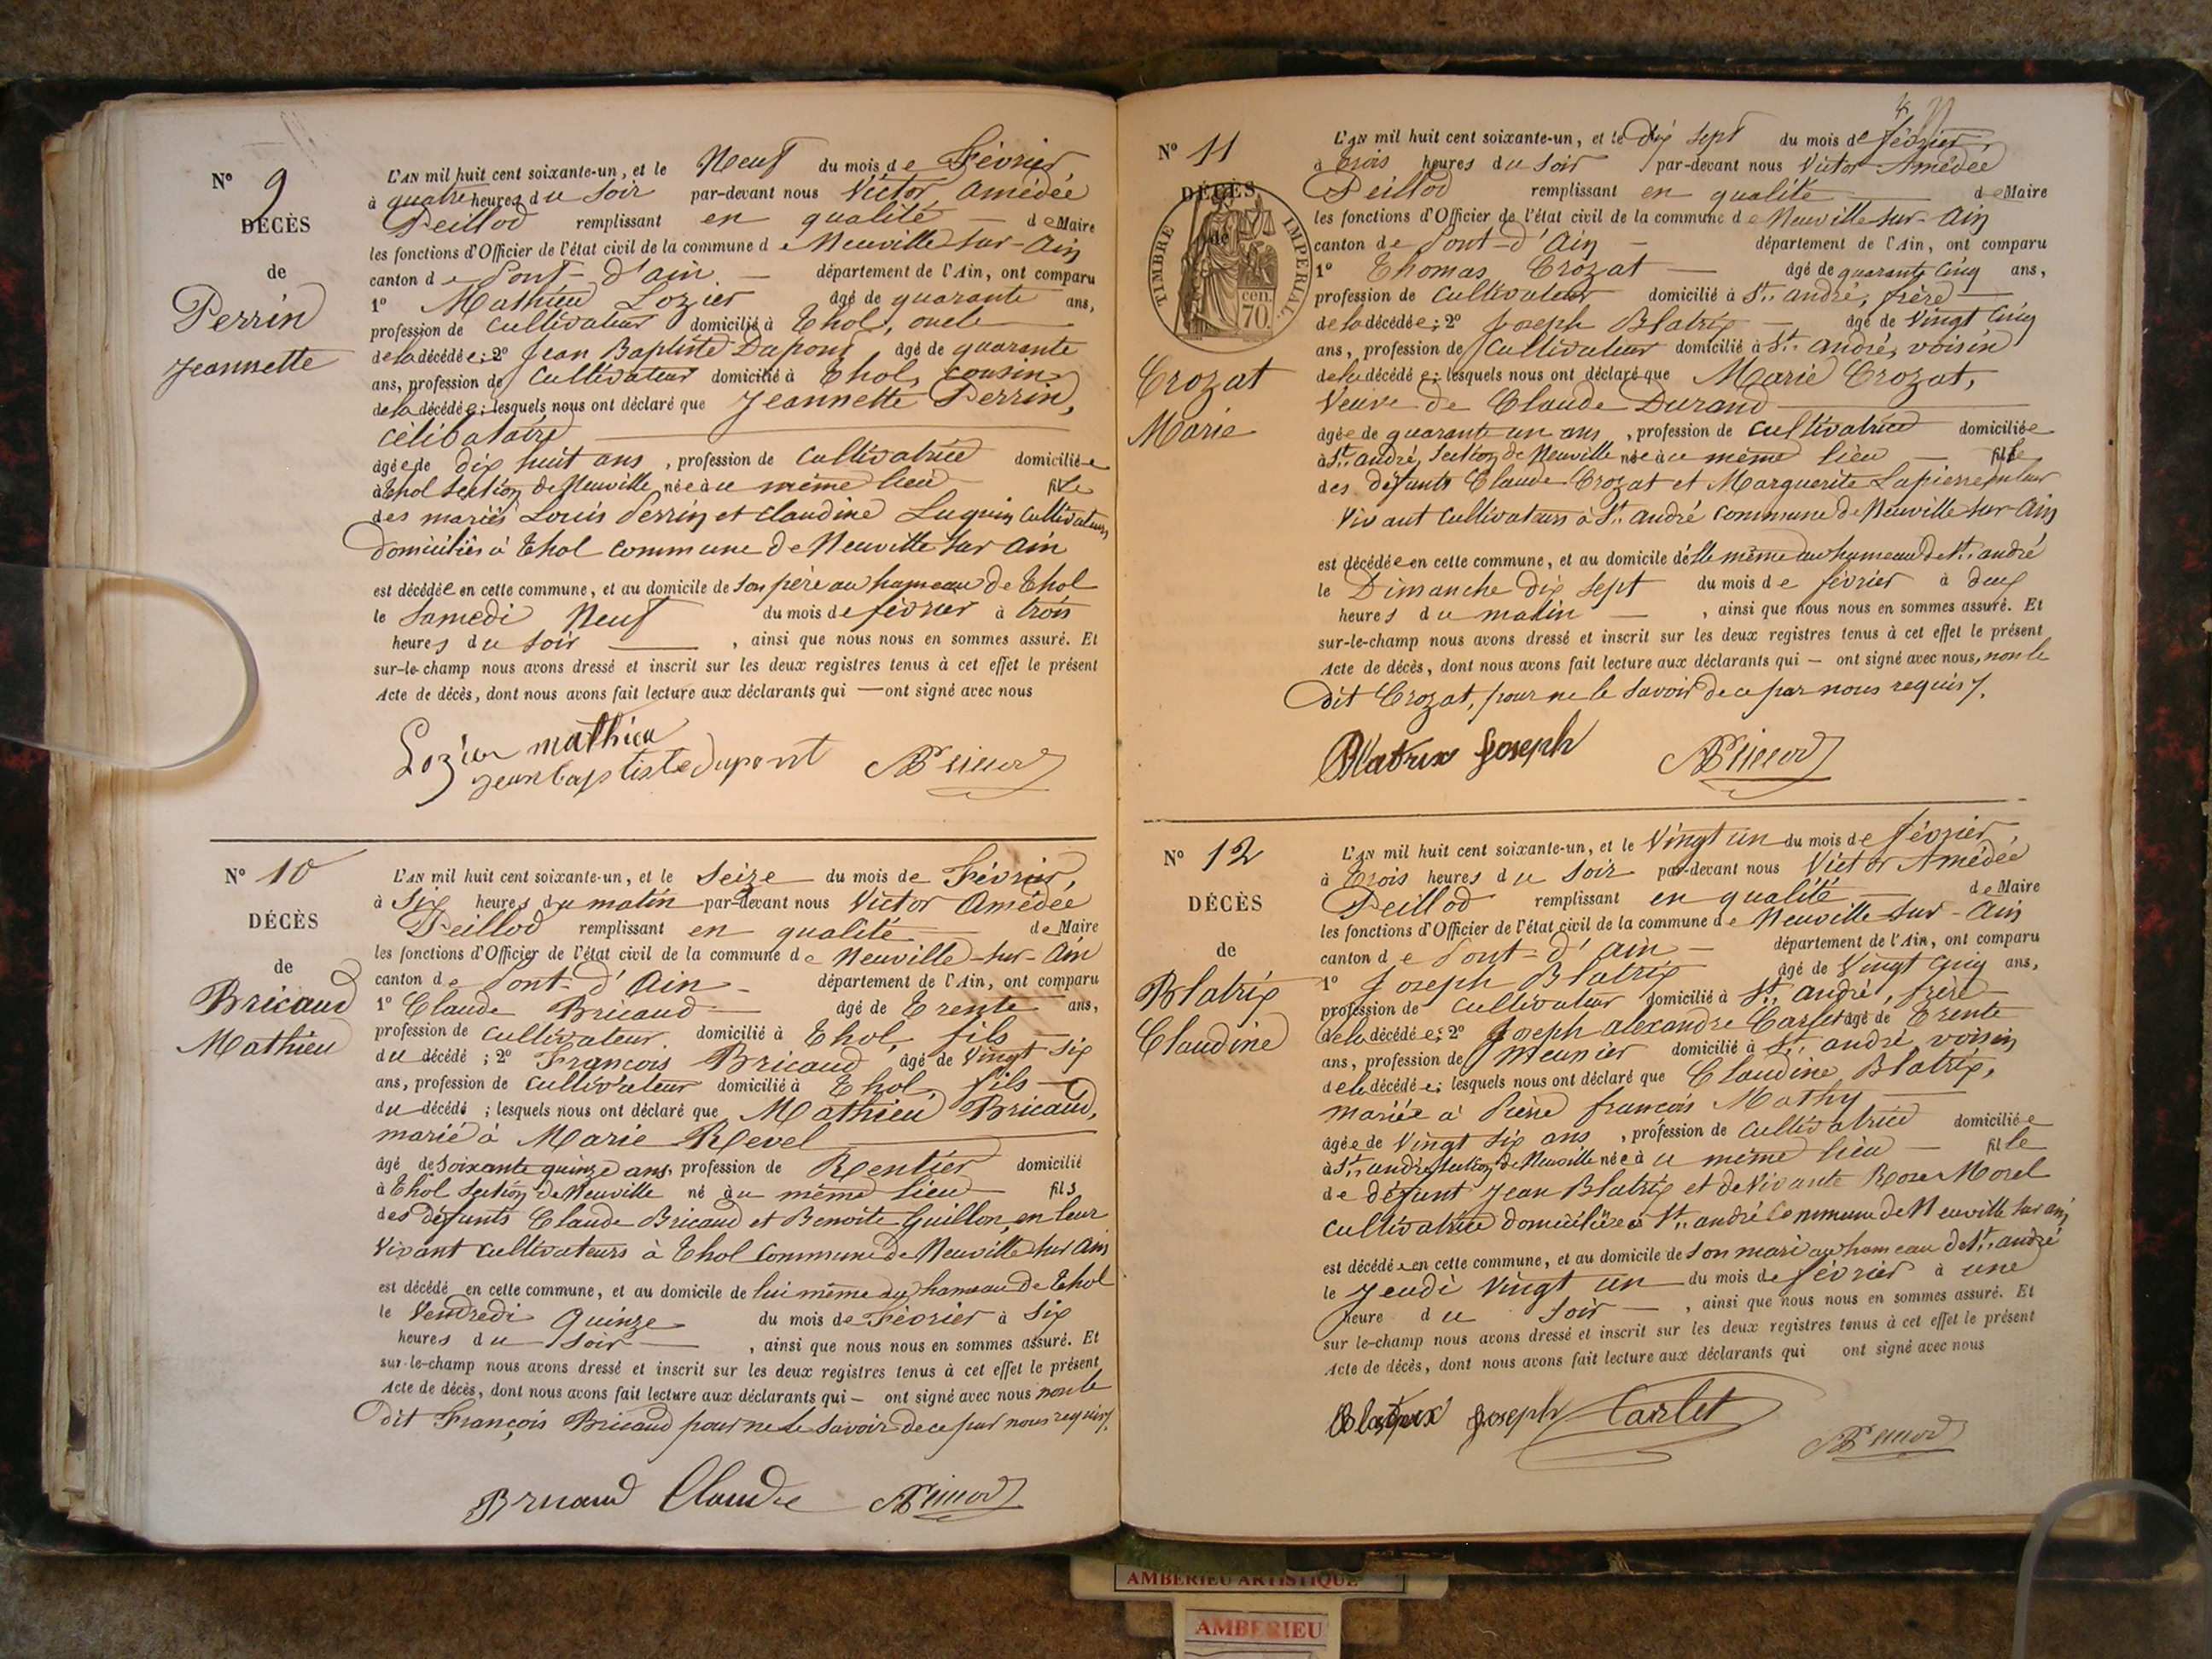 N° 9
DÉCÈS
de
Perrin
Jeannette
L'AN mil huit cent soixante-un, et le Neuf du mois de Février
à quatre heures du Soir par-devant nous Victor Amédée
Peillod remplissant en qualité de Maire
les fonctions d'Officier de l'état civil de la commune de Neuville sur-Ain
canton de Pont-d'ain département de l'Ain, ont comparu
1° Mathieu Lozier âgé de quarante ans,
profession de cultivateur domicilié à Thol, oncle
de la décédée; 2° Jean Baptiste Dupont âgé de quarante
ans, profession de Cultivateur domicilié à Thol, cousin
de la décédée; lesquels nous ont déclaré que Jeannette Perrin,
célibataire
âgée de dix huit ans, profession de Cultivatrice domiciliée
à Thol Section de Neuville, née à ce même lieu fille
des mariés Louis Perrin et Claudine Luquin Cultivateurs
domiciliés à Thol commune de Neuville sur Ain
est décédée en cette commune, et au domicile de son père au hameau de Thol
le Samedi Neuf du mois de février à trois
heures du soir, ainsi que nous nous en sommes assuré. Et
sur-le-champ nous avons dressé et inscrit sur les deux registres tenus à cet effet le présent
Acte de décès, dont nous avons fait lecture aux déclarants qui — ont signé avec nous
Lozier mathieu
jean baptiste dupont
N° 10
DÉCÈS
de
Bricaud
Mathieu
L'AN mil huit cent soixante-un, et le Seize du mois de Février,
à Six heures du matin par-devant nous Victor Amédée
Peillod remplissant en qualité de Maire
les fonctions d'Officier de l'état civil de la commune de Neuville-sur-Ain
canton de Pont-d'Ain département de l'Ain, ont comparu
1° Claude Bricaud âgé de Trente ans,
profession de cultivateur domicilié à Thol, fils
du décédé; 2° François Bricaud âgé de Vingt Six
ans, profession de cultivateur domicilié à Thol, fils
du décédé; lesquels nous ont déclaré que Mathieu Bricaud,
marié à Marie Revel
âgé de Soixante quinze ans, profession de Rentier domicilié
à Thol Section de Neuville né à ce même lieu fils
des défunts Claude Bricaud et Benoite Guillon, en leur
Vivant cultivateurs à Thol Commune de Neuville sur Ain
est décédé en cette commune, et au domicile de lui même au hameau de Thol
le Vendredi Quinze du mois de Février à Six
heures du Soir, ainsi que nous nous en sommes assuré. Et
sur-le-champ nous avons dressé et inscrit sur les deux registres tenus à cet effet le présent
Acte de décès, dont nous avons fait lecture aux déclarants qui — ont signé avec nous non le
dit François Bricaud pour ne le Savoir de ce par nous requis.
Bricaud Claude
N° 11
DÉCÈS
de
TIMBRE IMPERIAL
cen. 70.
Crozat
Marie
L'AN mil huit cent soixante-un, et le dix Sept du mois de février,
à trois heures du Soir par-devant nous Victor Amédée
Peillod remplissant en qualité de Maire
les fonctions d'Officier de l'état civil de la commune de Neuville sur-Ain
canton de Pont-d'Ain département de l'Ain, ont comparu
1° Thomas Crozat âgé de quarante Cinq ans,
profession de Cultivateur domicilié à St. andré, frère
de la décédée; 2° Joseph Blatrix âgé de Vingt Cinq
ans, profession de Cultivateur domicilié à St. andré, voisin
de la décédée; lesquels nous ont déclaré que Marie Crozat,
Veuve de Claude Durand
âgée de quarante un ans, profession de Cultivatrice domiciliée
à St. andré, Section de Neuville née à ce même lieu fille
des défunts Claude Crozat et Marguerite Lapierre, en leur
Vivant Cultivateurs à St. andré Commune de Neuville sur-Ain
est décédée en cette commune, et au domicile d'elle même au hameau de St. andré
le Dimanche dix Sept du mois de février à deux
heures du matin, ainsi que nous nous en sommes assuré. Et
sur-le-champ nous avons dressé et inscrit sur les deux registres tenus à cet effet le présent
Acte de décès, dont nous avons fait lecture aux déclarants qui — ont signé avec nous, non le
dit Crozat, pour ne le Savoir de ce par nous requis.
Blatrix joseph
N° 12
DÉCÈS
de
Blatrix
Claudine
L'AN mil huit cent soixante-un, et le Vingt un du mois de février,
à Trois heures du Soir par-devant nous Victor Amédée
Peillod remplissant en qualité de Maire
les fonctions d'Officier de l'état civil de la commune de Neuville sur-Ain
canton de Pont-d'ain département de l'Ain, ont comparu
1° Joseph Blatrix âgé de Vingt Cinq ans,
profession de Cultivateur domicilié à St. andré, frère
de la décédée; 2° Joseph alexandre Carlet âgé de Trente
ans, profession de Meunier domicilié à St. andré, voisin
de la décédée; lesquels nous ont déclaré que Claudine Blatrix,
mariée à Pierre françois Mathy
âgée de Vingt Six ans, profession de Cultivatrice domiciliée
à St. andré, Section de Neuville née à ce même lieu fille
de défunt Jean Blatrix et de Vivante Rose Morel
Cultivatrice domiciliée à St. andré Commune de Neuville sur ain
est décédée en cette commune, et au domicile de son mari au hameau de St. andré
le Jeudi Vingt un du mois de février à une
heure du Soir, ainsi que nous nous en sommes assuré. Et
sur le-champ nous avons dressé et inscrit sur les deux registres tenus à cet effet le présent
Acte de décès, dont nous avons fait lecture aux déclarants qui ont signé avec nous
Blatrix joseph Carlet
AMBERIEU ARTISTIQUE
AMBERIEU